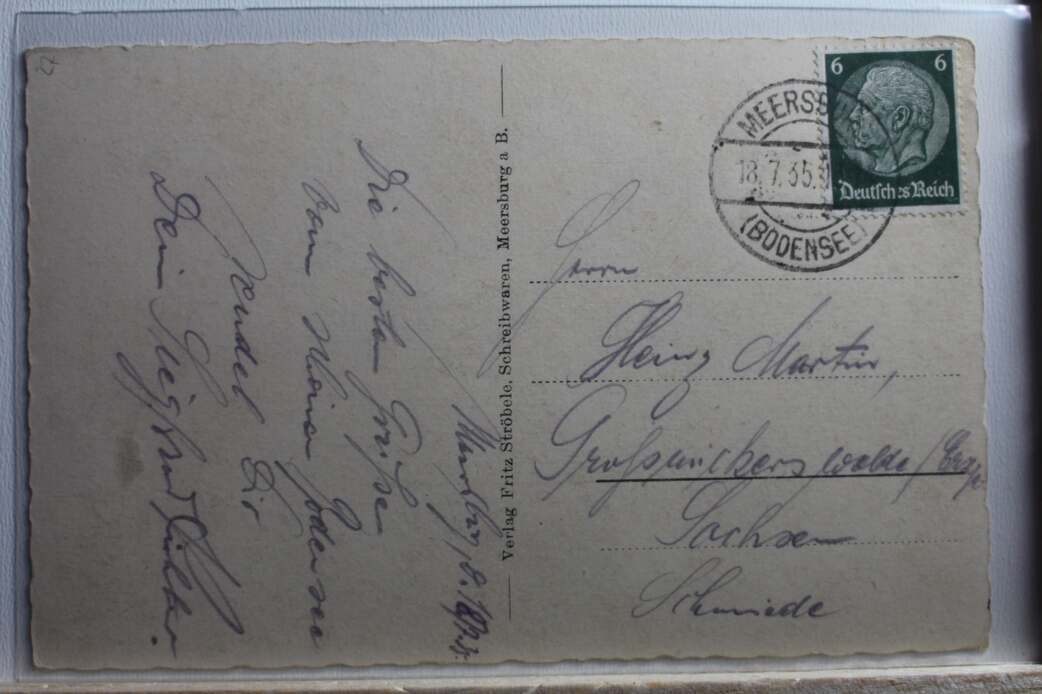 Meersburg, d. 18.7.35.
Die besten Grüße
vom schönen Bodensee
sendet Dir
Dein
Verlag Fritz Ströbele, Schreibwaren, Meersburg a B.
6 6
Deutsches Reich
MEERSB
18.7.35.
(BODENSEE)
Herrn
Heinz Martin,
Großrückerswalde / Erzg.
Sachsen
Schmiede